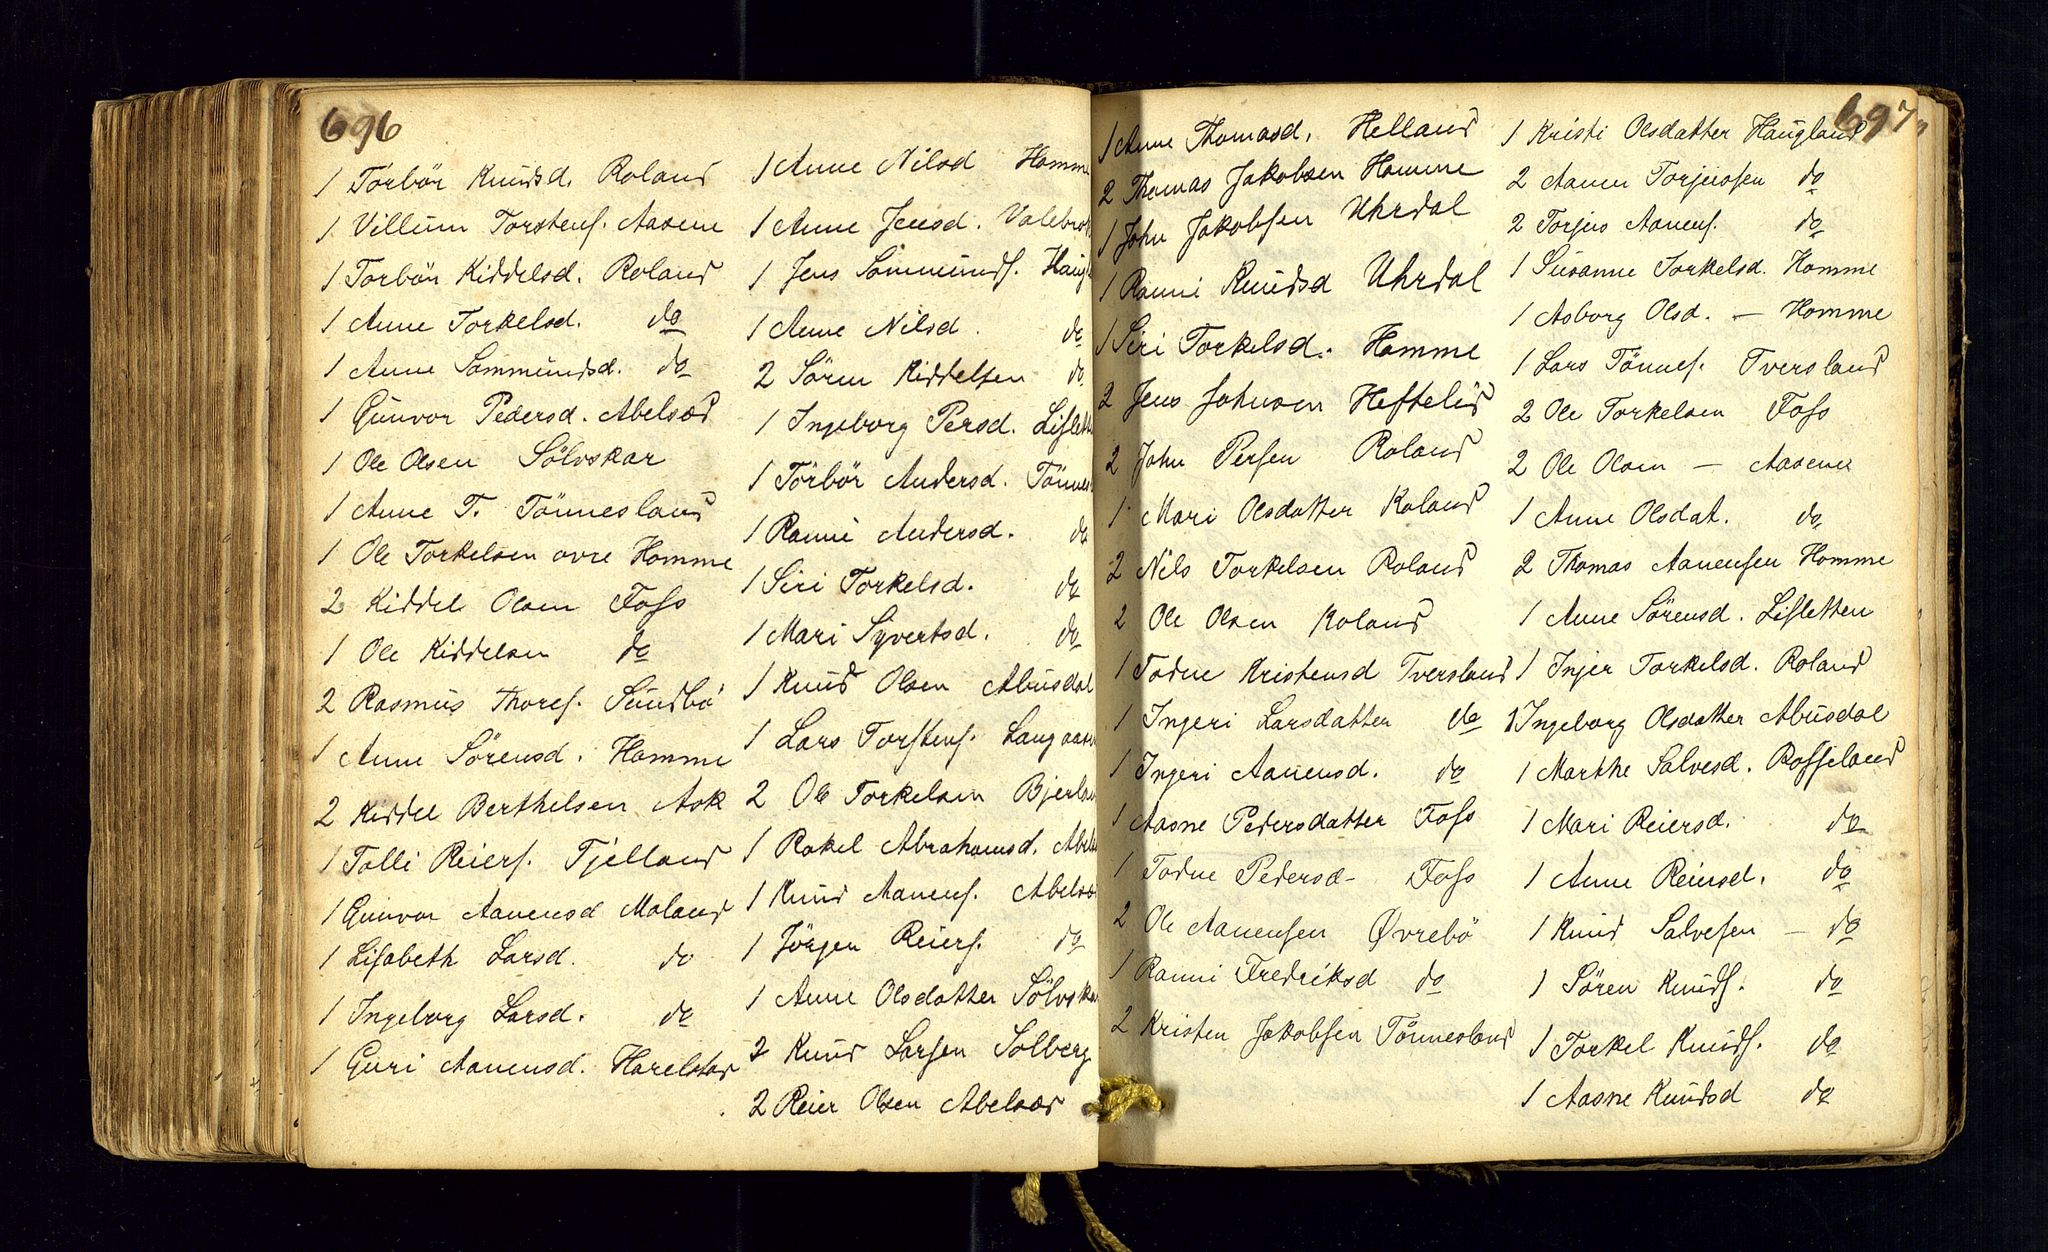 696
1 Torbör Knudsd. Roland
1 Villum Torstens. Aasene
1 Torbör Kiddelsd. Roland
1 Anne Torkelsd. do
1 Anne Sommundsd. do
1 Gunvor Pedersd. Abelsæd
1 Ole Olsen Sölvskar
1 Anne T. Tönnesland
1 Ole Torkelsen ovre Homme
2 Kiddel Olsen Foss
1 Ole Kiddelsen do
2 Rasmus Thores. Sundbö
1 Anne Sörensd. Homme
2 Kiddel Berthelsen Ask
1 Tolli Reiers. Tjelland
1 Gunvor Aanensd Moland
1 Lisabeth Larsd. do
1 Ingeborg Larsd. do
1 Guri Aanensd. Harelstad
1 Anne Nilsd Homme
1 Anne Jensd. Valebrok
1 Jens Sommunds. Haugl
1 Anne Nilsd. do
2 Sören Kiddelsen do
1 Ingeborg Persd. Lislett
1 Torbör Andersd. Tönnes
1 Ranni Andersd. do
1 Siri Torkelsd. do
1 Mari Syvertsd. do
1 Knud Olsen Abusdal
1 Lars Torstens. Langaasen
2 Ole Torkelsen Bjerlan
1 Rakel Abrahamsd. Abels
1 Knud Aanens. Abelsæ
1 Jörgen Reiers. do
1 Anne Olsdatter Sölvskar
2 Knud Larsen Solberg
2 Reier Olsen Abelsæd
697
1 Anne Thomasd. Helland
2 Thomas Jakobsen Homme
1 John Jakobsen Uhrdal
1 Ranni Knudsd Uhrdal
1 Siri Torkelsd. Homme
2 Jens Johnsen Heftelid
2 John Persen Roland
1 Mari Olsdatter Roland
2 Nils Torkelsen Roland
2 Ole Olsen Roland
1 Todne Kristensd Tversland
1 Ingeri Larsdatter do
1 Ingeri Aanensd. do
1 Aasne Pedersdatter Foss
1 Todne Pedersd- Foss
2 Ole Aanensen Øvrebö
1 Ranni Fredriksd do
2 Kristen Jakobsen Tönnesland
1 Kristi Olsdatter Haugland
2 Aanen Torjussen do
2 Torjus Aanens. do
1 Susanne Torkelsd. Homme
1 Asborg Olsd. — Homme
1 Lars Tönnes. Tversland
2 Ole Torkelsen Foss
2 Ole Olsen — Aasene
1 Anne Olsdat. do
2 Thomas Aanensen Homme
1 Anne Sörensd. Lisletten
1 Inger Torkelsd. Roland
1 Ingeborg Olsdatter Abusdal
1 Marthe Salvesd. Rosseland
1 Mari Reiersd. do
1 Anne Reiersd. do
1 Knud Salvesen — do
1 Sören Knuds. do
1 Torkel Knuds. do
1 Aasne Knudsd do